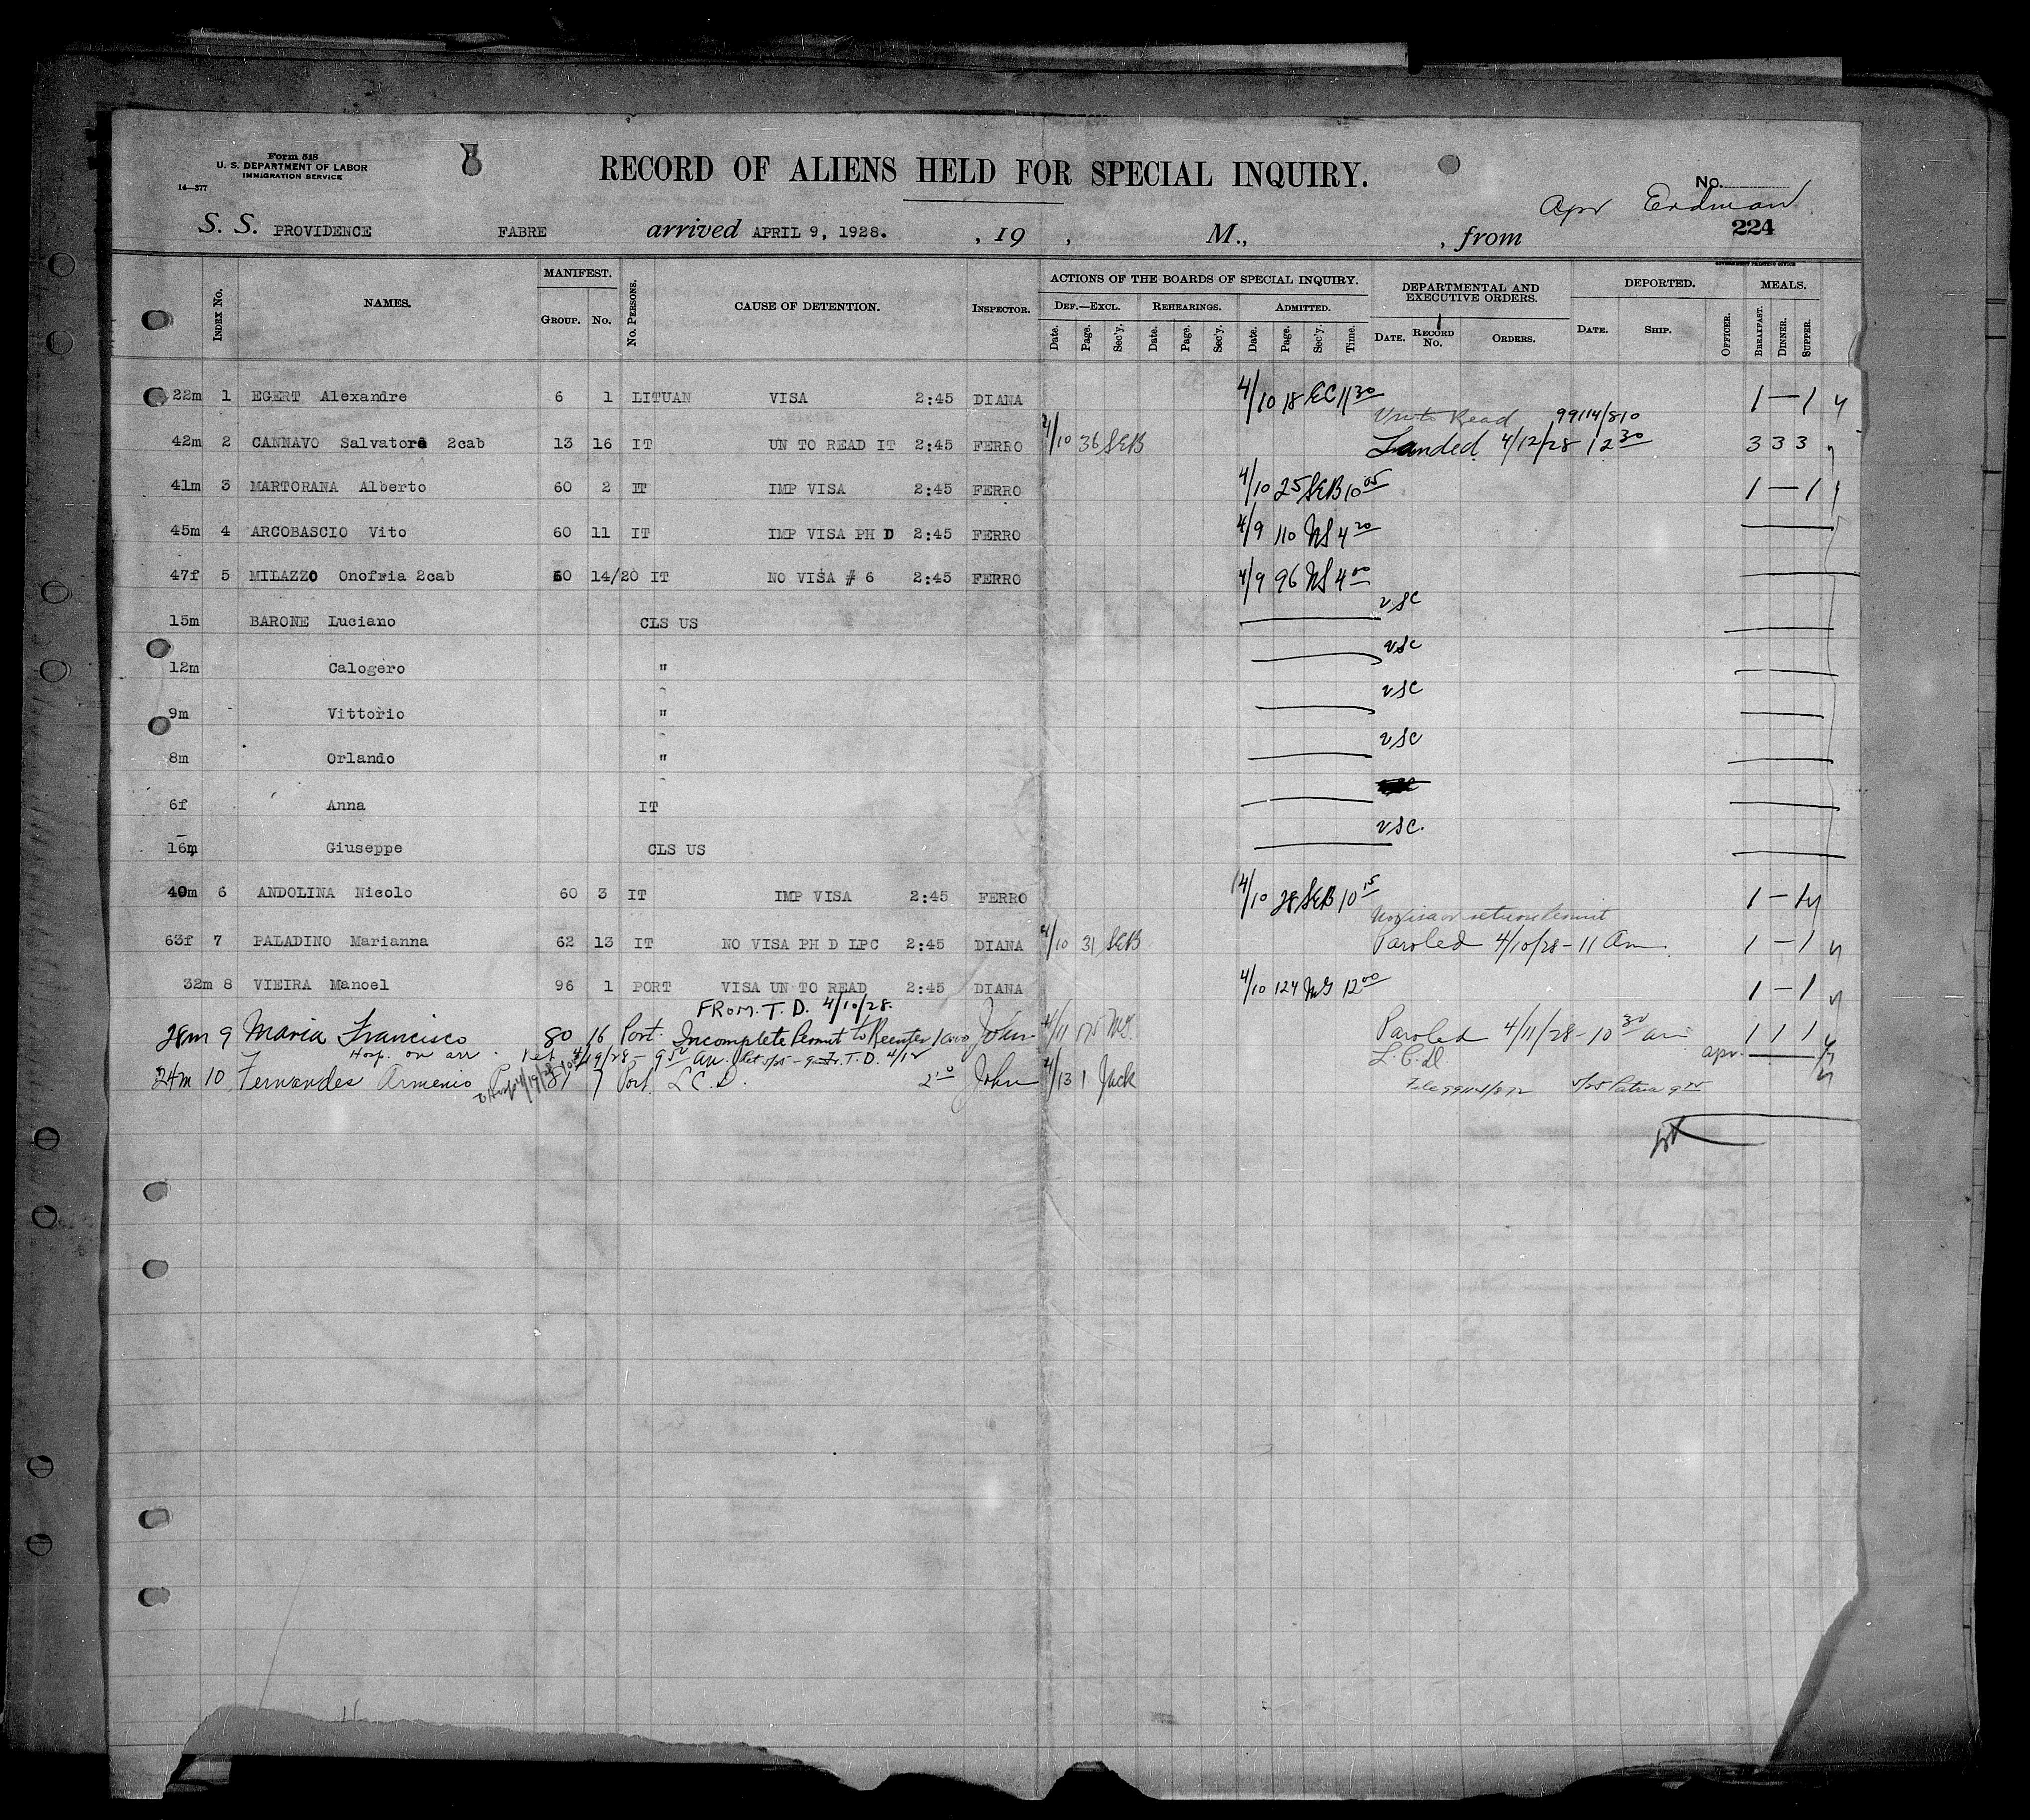 Form 518
U. S. DEPARTMENT OF LABOR
IMMIGRATION SERVICE
14—377
8
RECORD OF ALIENS HELD FOR SPECIAL INQUIRY.
No.
Apr Erdman
S. S. PROVIDENCE FABRE arrived APRIL 9, 1928. , 19 , M., , from 224
GOVERNMENT PRINTING OFFICE
INDEX No. NAMES. MANIFEST. GROUP. No. No. PERSONS. CAUSE OF DETENTION. INSPECTOR. ACTIONS OF THE BOARDS OF SPECIAL INQUIRY. DEPARTMENTAL AND EXECUTIVE ORDERS. DEPORTED. MEALS.
DEF.—EXCL. REHEARINGS. ADMITTED.
Date. Page. Sec'y. Date. Page. Sec'y. Date. Page. Sec'y. Time. DATE. RECORD No. ORDERS. DATE. SHIP. OFFICER. BREAKFAST. DINNER. SUPPER.
22m 1 EGERT Alexandre 6 1 LITUAN VISA 2:45 DIANA 4/10 18 EC 11 30 1 — 1
Un to Read 99114/810
42m 2 CANNAVO Salvatore 2cab 13 16 IT UN TO READ IT 2:45 FERRO 4/10 36 SEB Landed 4/12/28 12 30 3 3 3
41m 3 MARTORANA Alberto 60 2 IT IMP VISA 2:45 FERRO 4/10 25 SEB 10 05 1 — 1
45m 4 ARCOBASCIO Vito 60 11 IT IMP VISA PH D 2:45 FERRO 4/9 110 NS 4 20
47f 5 MILAZZO Onofria 2cab 60 14/20 IT NO VISA # 6 2:45 FERRO 4/9 96 NS 4 00
15m BARONE Luciano CLS US VSC
12m Calogero " VSC
9m Vittorio " VSC
8m Orlando " VSC
6f Anna IT
16m Giuseppe CLS US VSC.
40m 6 ANDOLINA Nicolo 60 3 IT IMP VISA 2:45 FERRO 4/10 28 SEB 10 15 1 — 1
No visa or return Permit
63f 7 PALADINO Marianna 62 13 IT NO VISA PH D LPC 2:45 DIANA 4/10 31 SEB Paroled 4/10/28 - 11 Am. 1 — 1
32m 8 VIEIRA Manoel 96 1 PORT VISA UN TO READ 2:45 DIANA 4/10 124 MG 12 00 1 — 1
FROM. T. D. 4/10/28.
28m 9 Maria Francisco 80 16 Port. Incomplete Permit to Reenter 10 00 John 4/11 175 Paroled 4/11/28 - 10 30 am 1 1 1
Hosp. on arr. 4/19/28 - 9 50 am. T. D. 4/12 L. C. D. apr.
24m 10 Fernandes Armenio 7 Port. L C. D. 2 10 John 4/13 1 Jack
File 99114/892 5/25 Patria 9 25